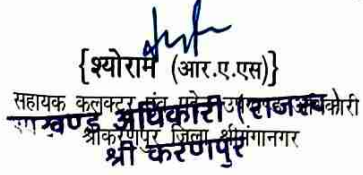 {श्योराम (आर.ए.एस)}
सहायक कलक्टर एवं पदेन उप
खण्ड अधिकारी (राजस्व)
श्रीकरणपुर जिला श्रीगंगानगर
श्री करणपुर